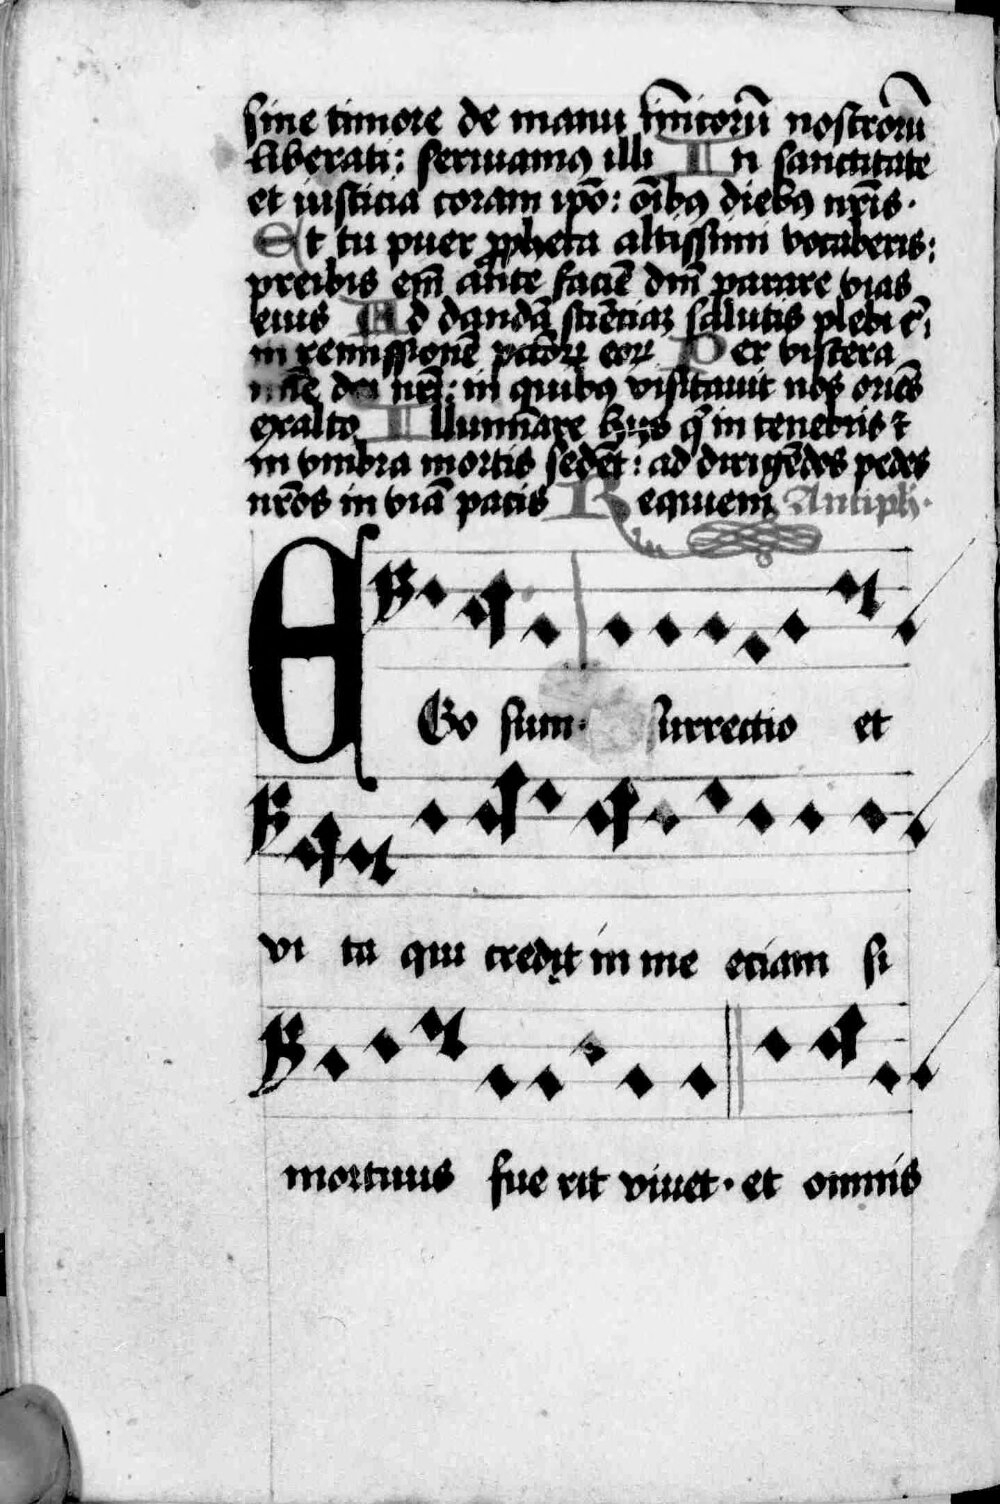 sine timore de manu inīcorū nostrorū
liberati: seruiamꝰ illi In sanctitate
et iusticia coram ipō: oībꝰ diebꝰ nr̄is.
Et tu puer ꝓpheta altissimi vocaberis:
preibis em̄ ante faciē dm̄ parare vias
eius Ad dandā sciēciaꝫ salutis plebi eiꝰ
in remissionē pctōꝝ eoꝝ Per viscera
mīe dei nr̄i: in quibꝰ visitauit nos oriēs
exalto Illuminare hijs q̄ in tenebris ⁊
in vmbra mortis sedēt: ad dirigēdos pedes
nr̄os in viā pacis Requiem Antiph.
EGo sum. surrectio et
vi ta qui credit in me eciam si
mortuus fue rit viuet. et omnis